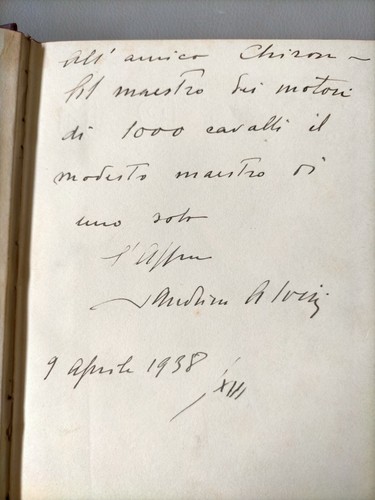 All' amico Chiron –
Al maestro dei motori
di 1000 cavalli il
modesto maestro di
uno solo
l'Affmo
9 Aprile 1938
XIII